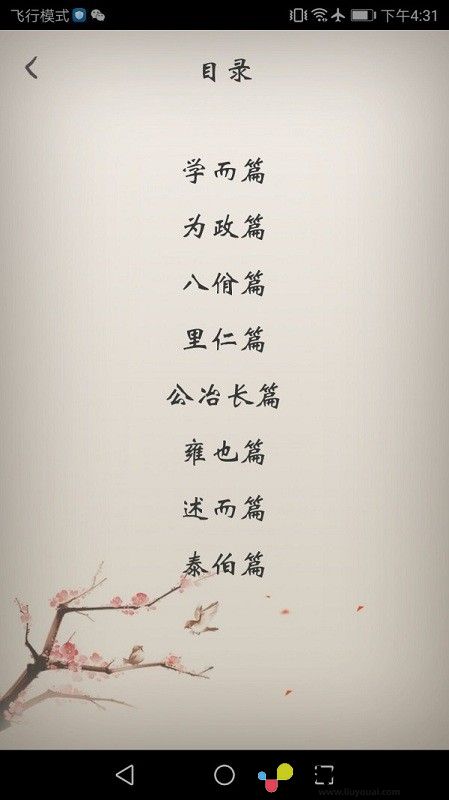 飞行模式 下午4:31
目录
学而篇
为政篇
八佾篇
里仁篇
公冶长篇
雍也篇
述而篇
泰伯篇
www.liuyouai.com